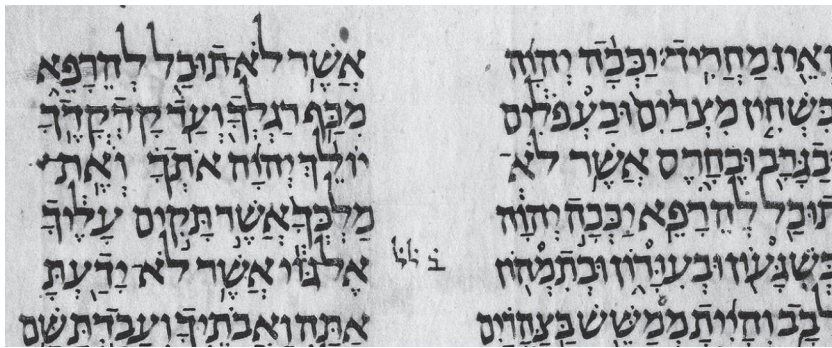 וְאֵין מַחֲרִיד יַכְּכָה יְהוָה
בִּשְׁחִין מִצְרַיִם וּבַעְפֹלִים
וּבַגָּרָב וּבֶחָרֶס אֲשֶׁר לֹא
תוּכַל לְהֵרָפֵא יַכְּכָה יְהוָה
בְּשִׁגָּעוֹן וּבְעִוָּרוֹן וּבְתִמְהוֹן
לֵבָב וְהָיִיתָ מְמַשֵּׁשׁ בַּצָּהֳרַיִם
אֲשֶׁר לֹא תוּכַל לְהֵרָפֵא
מִכַּף רַגְלְךָ וְעַד קָדְקֳדֶךָ
יוֹלֵךְ יְהוָה אֹתְךָ וְאֶת
מַלְכְּךָ אֲשֶׁר תָּקִים עָלֶיךָ
אֶל גּוֹי אֲשֶׁר לֹא יָדַעְתָּ
אַתָּה וַאֲבֹתֶיךָ וְעָבַדְתָּ שָּׁם